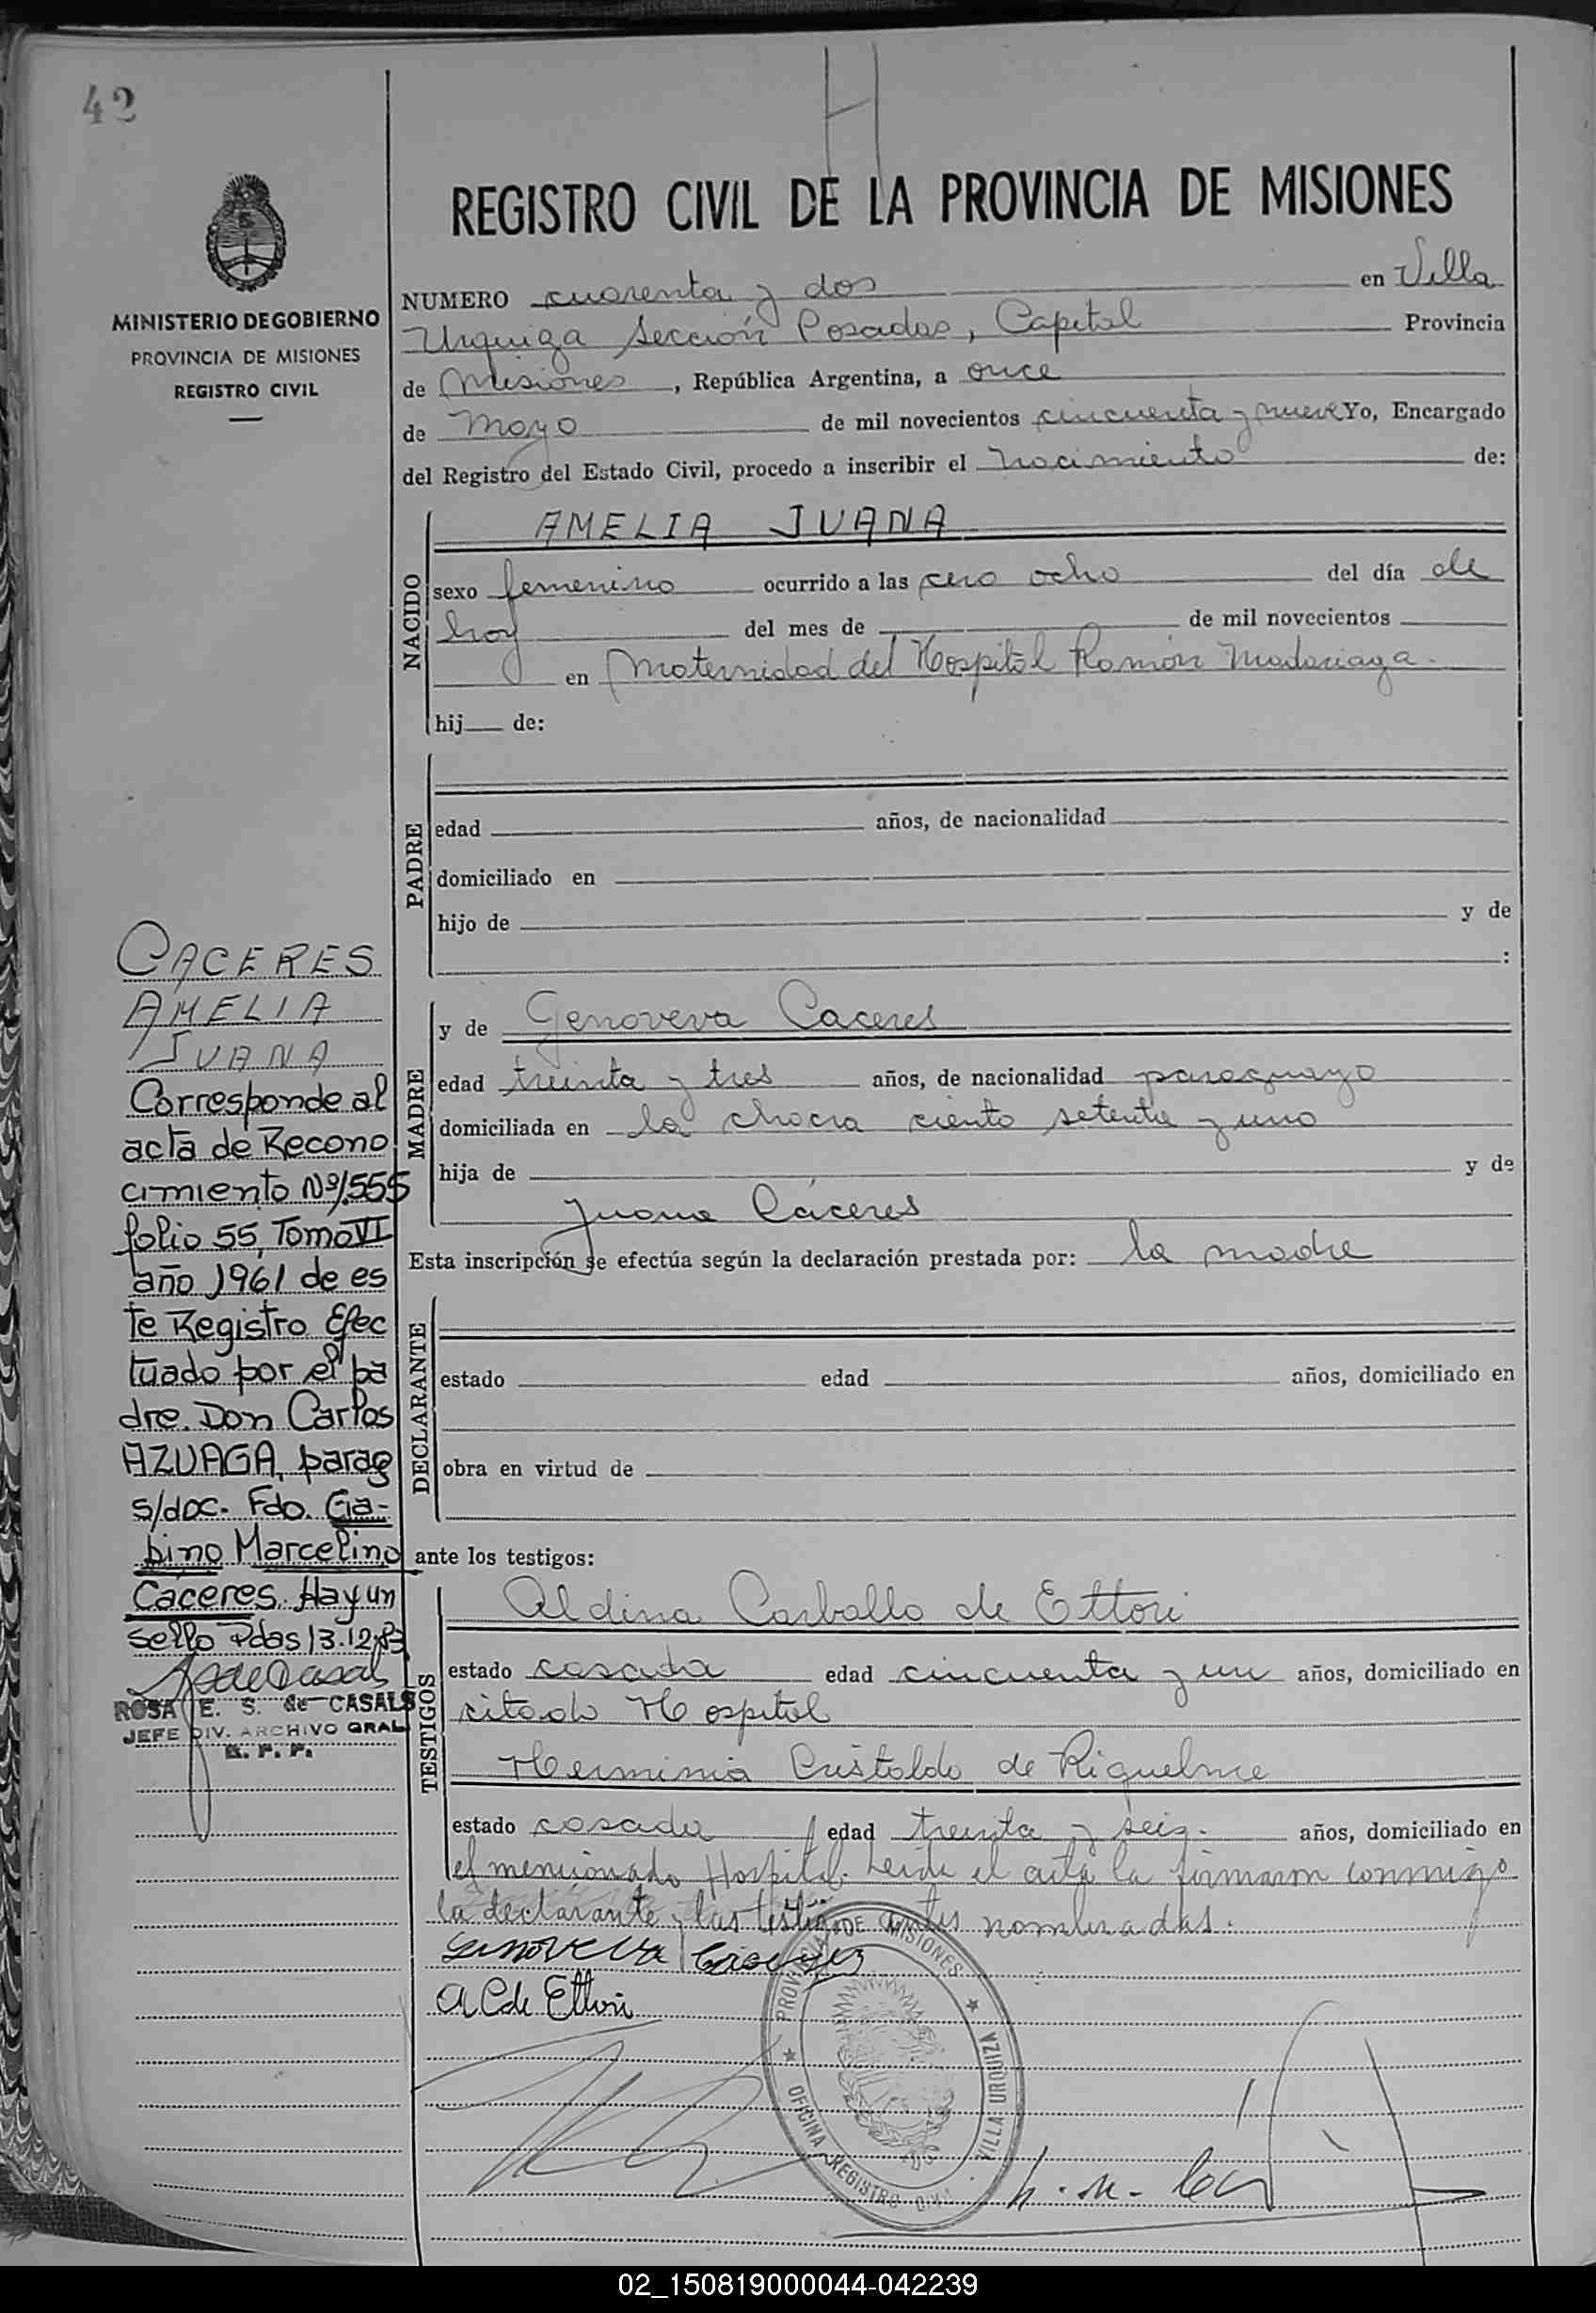 42
H
REGISTRO CIVIL DE LA PROVINCIA DE MISIONES
MINISTERIO DE GOBIERNO
PROVINCIA DE MISIONES
REGISTRO CIVIL
NUMERO cuarenta y dos en Villa
Urquiza Sección Posadas, Capital Provincia
de Misiones, República Argentina, a once
de Mayo de mil novecientos cincuenta y nueve Yo, Encargado
del Registro del Estado Civil, procedo a inscribir el nacimiento de:
NACIDO
AMELIA JUANA
sexo femenino ocurrido a las cero ocho del día de
hoy del mes de de mil novecientos
en Maternidad del Hospital Ramón Madariaga.
hij de:
PADRE
edad años, de nacionalidad
domiciliado en
hijo de y de
:
MADRE
y de Genoveva Caceres
edad treinta y tres años, de nacionalidad paraguaya
domiciliada en la chacra ciento setenta y uno
hija de y de
Juana Cáceres
Esta inscripción se efectúa según la declaración prestada por: la madre
DECLARANTE
estado edad años, domiciliado en
obra en virtud de
ante los testigos:
TESTIGOS
Aldina Carballo de Ettori
estado casada edad cincuenta y un años, domiciliado en
citado Hospital
Herminia Cristaldo de Riquelme
estado casada edad treinta y seis. años, domiciliado en
el mencionado Hospital. Leida el acta la firmaron conmigo
la declarante y las testigos antes nombradas.
Genoveva Caceres
A C de Ettori
PROVINCIA DE MISIONES
VILLA URQUIZA
OFICINA REGISTRO CIVIL
CACERES
AMELIA
JUANA
Corresponde al
acta de Recono
cimiento Nº1.555
folio 55, Tomo VI
año 1961 de es
te Registro Efec
tuado por el pa
dre. Don Carlos
AZUAGA, parag
s/doc. Fdo. Ga-
bino Marcelino
Caceres. Hay un
sello Pdas 13.12.83
ROSA E. S. de CASALS
JEFE DIV. ARCHIVO GRAL
R. P. P.
02_150819000044-042239